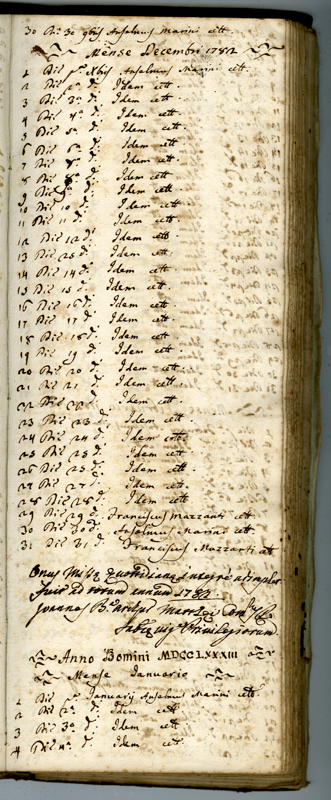 30 Die 30 9bris Anselmus Marini cett.
Mense Decembri 1782
1 Die pa Xbris Anselmus Marini cett.
2 Die 2a d. Idem cett
3 Die 3a d. Idem cett
4 Die 4a d. Idem cett
5 Die 5a d. Idem cett.
6 Die 6a d. Idem cett
7 Die 7a d. Idem cett
8 Die 8a d. Idem cett.
9 Die 9a d. Idem cett.
10 Die 10 d. Idem cett.
11 Die 11 d. Idem cett
12 Die 12 d. Idem cett
13 Die 13 d. Idem cett.
14 Die 14 d. Idem cett
15 Die 15 d. Idem cett.
16 Die 16 d. Idem cett.
17 Die 17 d. Idem cett.
18 Die 18 d. Idem cett.
19 Die 19 d. Idem cett.
20 Die 20 d. Idem cett.
21 Die 21 d. Idem cett.
22 Die 22 d. Idem cett.
23 Die 23 d. Idem cett.
24 Die 24 d. Idem cett.
25 Die 25 d. Idem cett
26 Die 25 d. Idem cett.
27 Die 27 d. Idem cett
28 Die 28 d. Idem cett
29 Die 29 d. Franciscus Mazzanti cett
30 Die 30 d. Anselmus Marini cett
31 Die 31 d. Franciscus Mazzanti cett
Onus Misse quotidiane integre adimpletum
fuit per totum annum 1782
Joannes
Anno Domini MDCCLXXXIII
Mense Januario
1 Die pa Januarij Anselmus Marini cett.
2 Die 2a d. Idem cett
3 Die 3a d. Idem cett
4 Die 4a d. Idem cett.